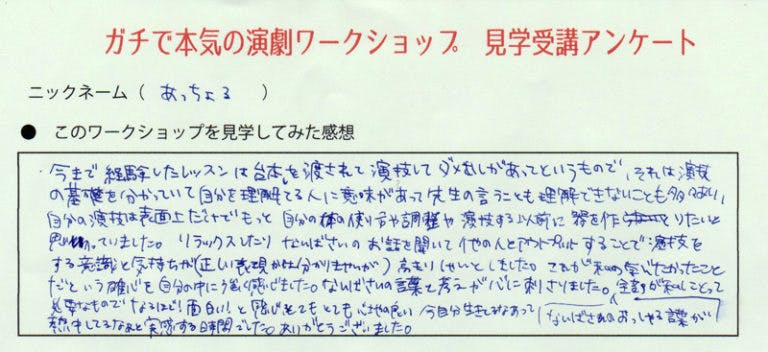 ガチで本気の演劇ワークショップ 見学受講アンケート
ニックネーム( あっちょる )
● このワークショップを見学してみた感想
・今まで経験したレッスンは台本を渡されて演技してダメ出しがあってというもので、それは演技
の基礎を分かっていて自分を理解してる人に意味があって先生の言うことも理解できないことも多々あり、
自分の演技は表面上だけでもっと自分の体の使い方や調整や演技する以前に器を作りたいと
思っていました。リラックスしたりないばさいのお話を聞いて他の人とアウトプットすることで演技を
する意識と気持ちが(正しい表現かは分かりませんが)高まり しました。これが私の学びたかったこと
だという確心を自分の中に強く感じました。ないばさいの言葉と考えが心に刺さりました。
必要なものでなるほど!面白い!と感じとてもとても心地の良い 今自分生きてるなあって
熱中してるなあと実感する時間でした。ありがとうございました。
ないばさんのおっしゃる言葉が